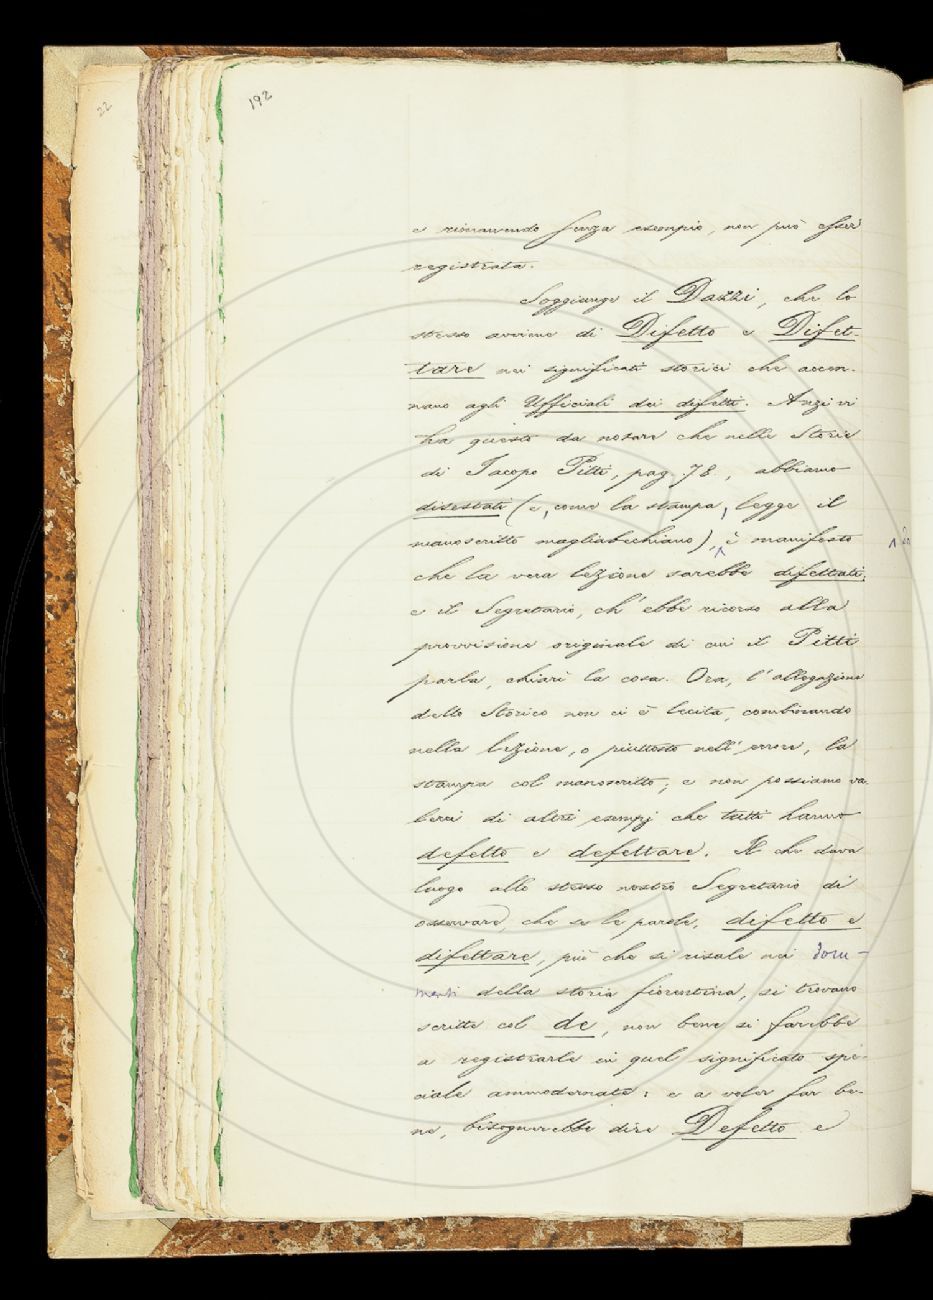 22
192
e rimanendo senza esempio, non può esser
registrata.
Soggiunge il Dazzi, che lo
stesso avviene di Difetto e Difet-
tare nei significati storici che accen-
nano agli Ufficiali dei difetti. Anzi vi
ha questo da notare che nelle Storie
di Jacopo Pitti, pag. 78, abbiamo
disestati (e, come la stampa, legge il
manoscritto magliabechiano), è manifesto
che la vera lezione sarebbe difettati:
e il Segretario, ch'ebbe ricorso alla
provvisione originale di cui il Pitti
parla, chiarì la cosa. Ora, l'allegazione
dello Storico non ci è lecita, combinando
nella lezione, o piuttosto nell'errore, la
stampa col manoscritto; e non possiamo va-
lerci di altri esempj che tutti hanno
defetto e defettare. Il che dava
luogo allo stesso nostro Segretario di
osservare, che se le parole, difetto e
difettare, più che si risale nei docu-
menti della storia fiorentina, si trovano
scritte col de, non bene si farebbe
a registrarle in quel significato spe-
ciale ammodernate: e a voler far be-
ne, bisognerebbe dire Defetto e